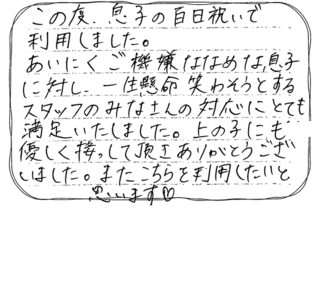 この度、息子の百日祝いで
利用しました。
あいにくご機嫌ななめな息子
に対し、一生懸命笑わそうとする
スタッフのみなさんの対応にとても
満足いたしました。上の子にも
優しく接して頂きありがとうござ
いました。またこちらを利用したいと
思います♡